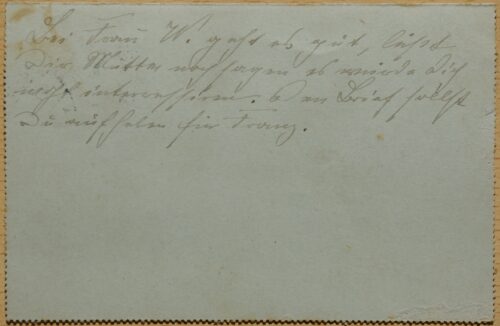 Bei Frau W. geht es gut, läßt
Dir Mutter noch sagen es würde Dich
wohl interressiren. Den Brief sollst
Du aufheben für Franz.